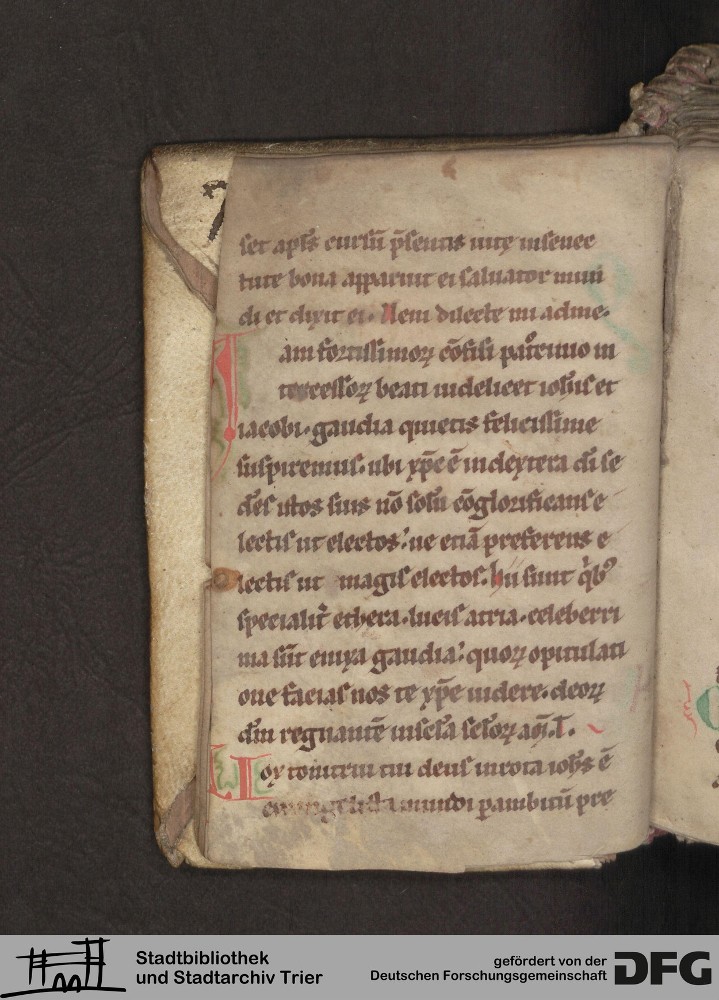 set apl̄s cursū p̄sentis uitę insenec
tute bona apparuit ei saluator mun
di et dixit ei. Veni dilecte mi adme.
Iam fortissimoꝝ cōfisi pat͛rnio in
tercessoꝝ beati uidelicet ioh̄is et
iacobi. gaudia quietis felicissime
suspiremus. ubi xp̄c ē indextera dī se
dēs istos suis nō solū cōglorificans e
lectis ut electos: ue etiā preferens e
lectis ut magis electos. hii sunt qͥbꝰ
specialit͛ ethera. lucis atria. celeberri
ma sūt enixa gaudia: quoꝝ opitulati
one facias nos te xp̄e uidere. deoꝝ
dm̄ regnantē insc̄la sc̄loꝝ am̄.
Vox tonitrui tui deus inrota ioh̄s ē
euangelista mundi p ambitū pre
Stadtbibliothek
und Stadtarchiv Trier
gefördert von der
Deutschen Forschungsgemeinschaft
DFG